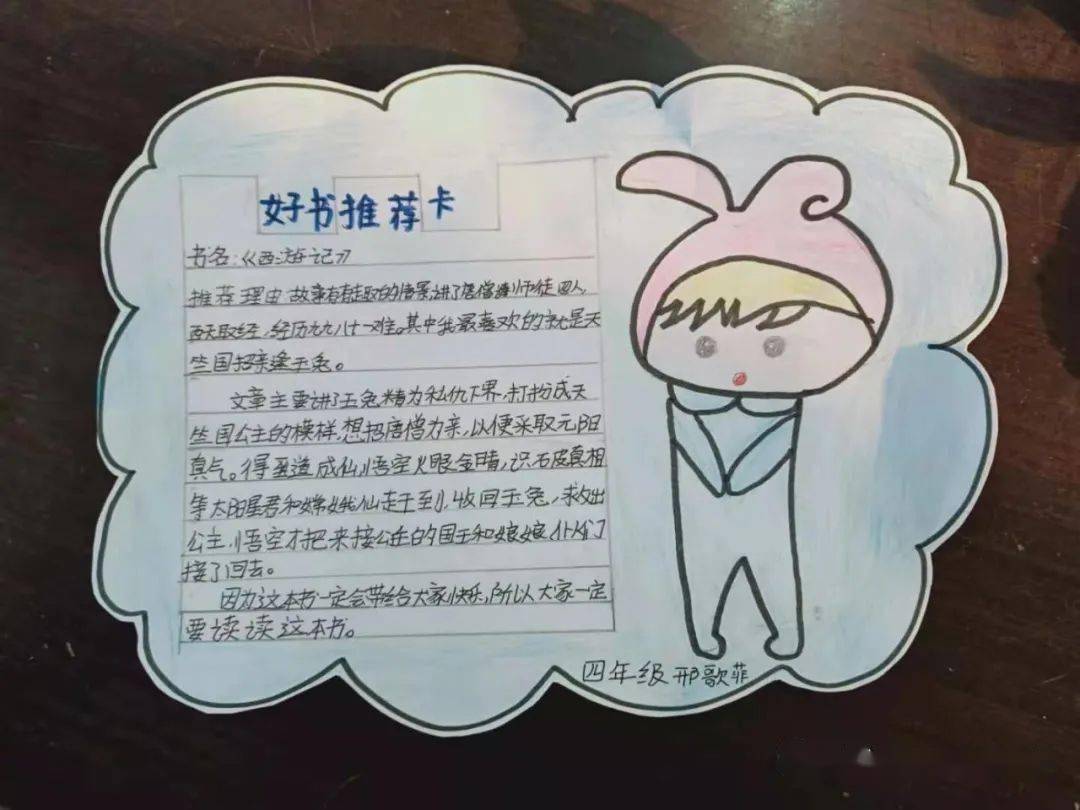 好书推荐卡
书名:《西游记》
推荐理由 故事有有趣的唐僧师徒四人,
西天取经,经历九九八十一难。其中我最喜欢的就是天
竺国招亲逢玉兔。
文章主要讲了玉兔精为私仇下界,打扮成天
竺国公主的模样,想招唐僧为亲,以便采取元阳
真气。得至道成仙,悟空火眼金睛,识破真相
等太阳星君和嫦娥仙赶到,收回玉兔,救出
公主,悟空才把来接公主的国王和娘娘他们
接了回去。
因为这本书一定会带给大家快乐,所以大家一定
要读读这本书。
四年级 邢歌菲